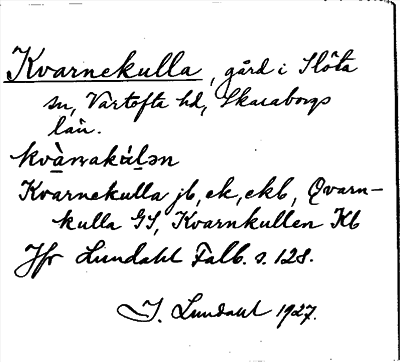 Kvarnekulla, gård i Slöta
sn, Vartofta hd, Skaraborgs
län.
kvàrnakúlən
Kvarnekulla jb, ek, ekb, Qvarn-
kulla GS, Kvarnkullen Kb
Jfr Lundahl Falb. s. 128.
I. Lundahl 1927.